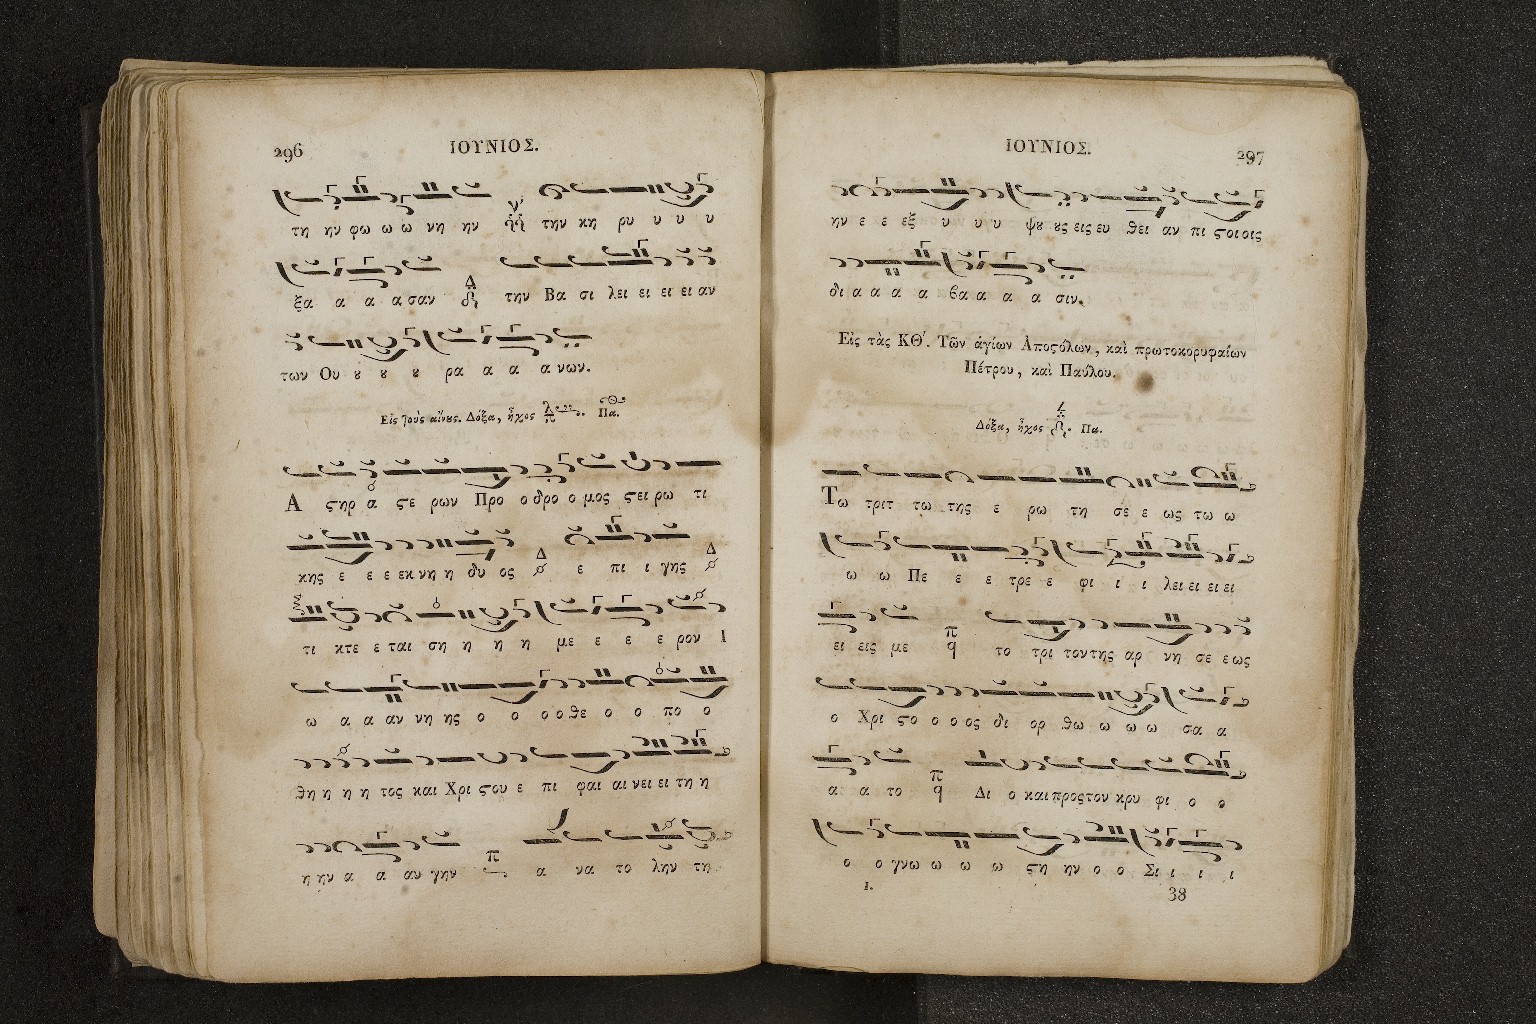 296 ΙΟΥΝΙΟΣ.
τη ην φω ω ω νη ην την κη ρυ υ υ υ
ξα α α α σαν την Βα σι λει ει ει ει αν
των Ου ȣ ȣ ȣ ρα α α α νων.
Εἰς τοὺς αἴνȣς. Δόξα, ἦχος Πα.
Α ϛηρ α ϛε ρων Προ ο δρο ο μος ϛει ρω τι
κης ε ε ε εκ νη η δυ ος ε πι ι γης
τι κτε ε ται ση η η η με ε ε ε ρον Ι
ω α α αν νη ης ο ο ο ο θε ο ο πο ο
θη η η η τος και Χρι ϛου ε πι φαι αι νει ει τη η
η ην α α αν γην α να το λην τη
ΙΟΥΝΙΟΣ. 297
ην ε ε εξ υ υ υ ψȣ ȣς εις ευ θει αν πι ϛοι οις
δι α α α α βα α α α σιν.
Εἰς τὰς ΚΘ΄. Τῶν ἁγίων Ἀποϛόλων, καὶ πρωτοκορυφαίων
Πέτρου, καὶ Παύλου.
Δόξα, ἦχος Πα.
Τω τριτ τω της ε ρω τη σε ε ως τω ω
ω ω Πε ε ε τρε ε φι ι ι λει ει ει ει
ει εις με το τρι τον της αρ νη σε ε ως
ο Χρι ϛο ο ο ος δι ορ θω ω ω ω σα α
α α το Δι ο και προς τον κρυ φι ο ο
ο ο γνω ω ω ω ϛη ην ο ο Σι ι ι ι
I. 38